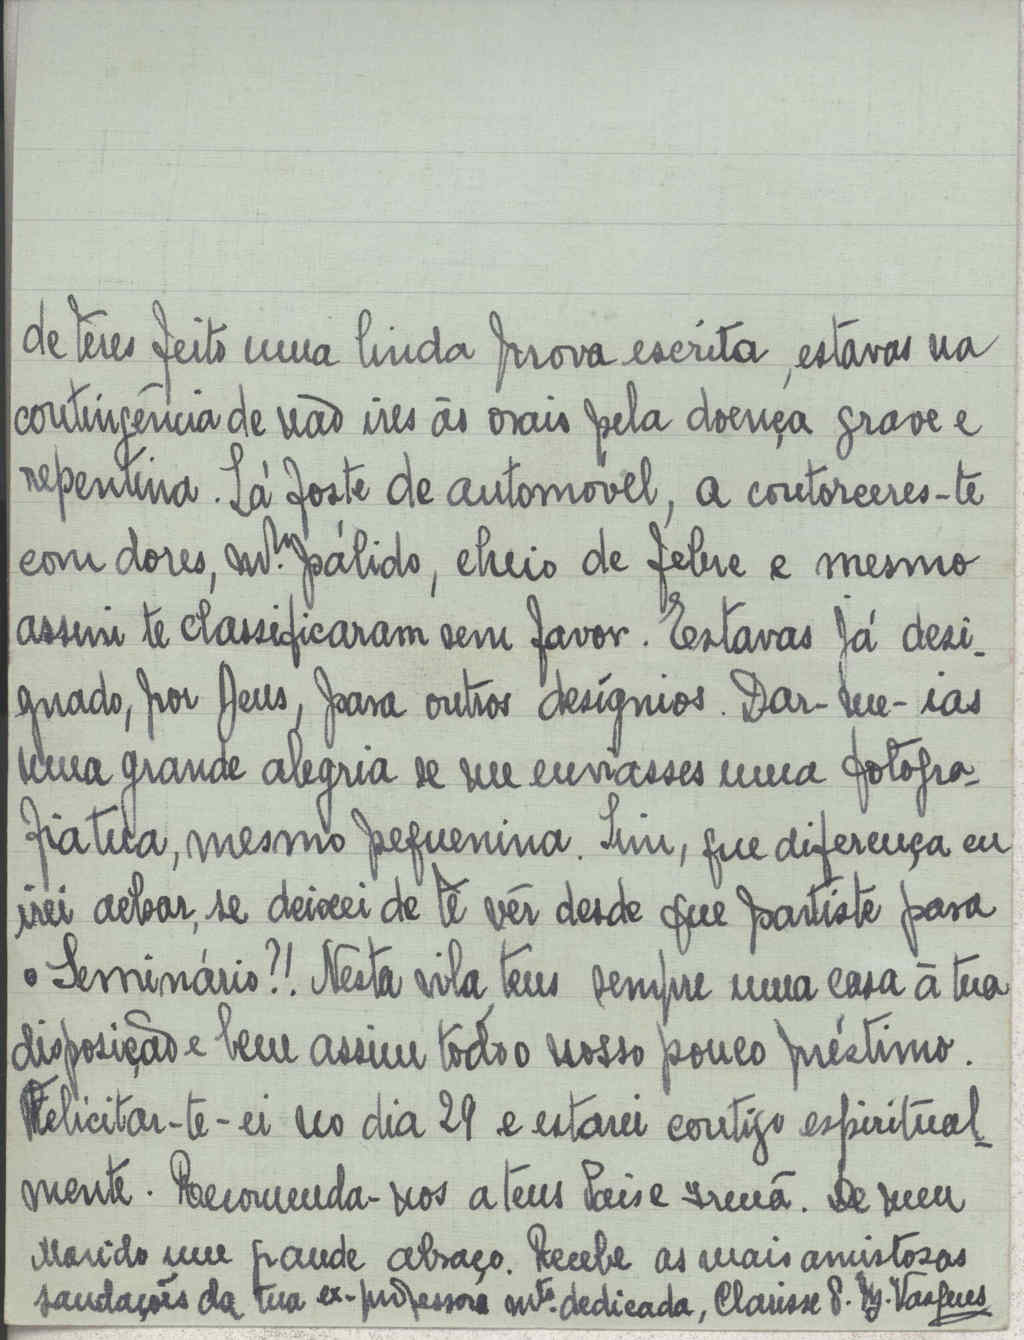 de teres feito uma linda prova escrita, estavas na
contingência de não ires às orais pela doença grave e
repentina. Lá foste de automóvel, a contorceres-te
com dores, mt.º pálido, cheio de febre e mesmo
assim te classificaram sem favor. Estavas já desi-
gnado, por Deus, para outros desígnios. Dar-me-ias
uma grande alegria se me enviasses uma fotogra-
fia tua, mesmo pequenina. Sim, que diferença eu
irei achar, se deixei de te vêr desde que partiste para
o Seminário?!. Nesta vila, tens sempre uma casa à tua
disposição e bem assim todo o nosso pouco préstimo.
Felicitar-te-ei no dia 29 e estarei contigo espiritual-
mente. Recomenda-nos a teus Pais e Irmã. De meu
Marido um grande abraço. Recebe as mais amistosas
saudações da tua ex-professora mt.º dedicada, Clarisse P. Vasques